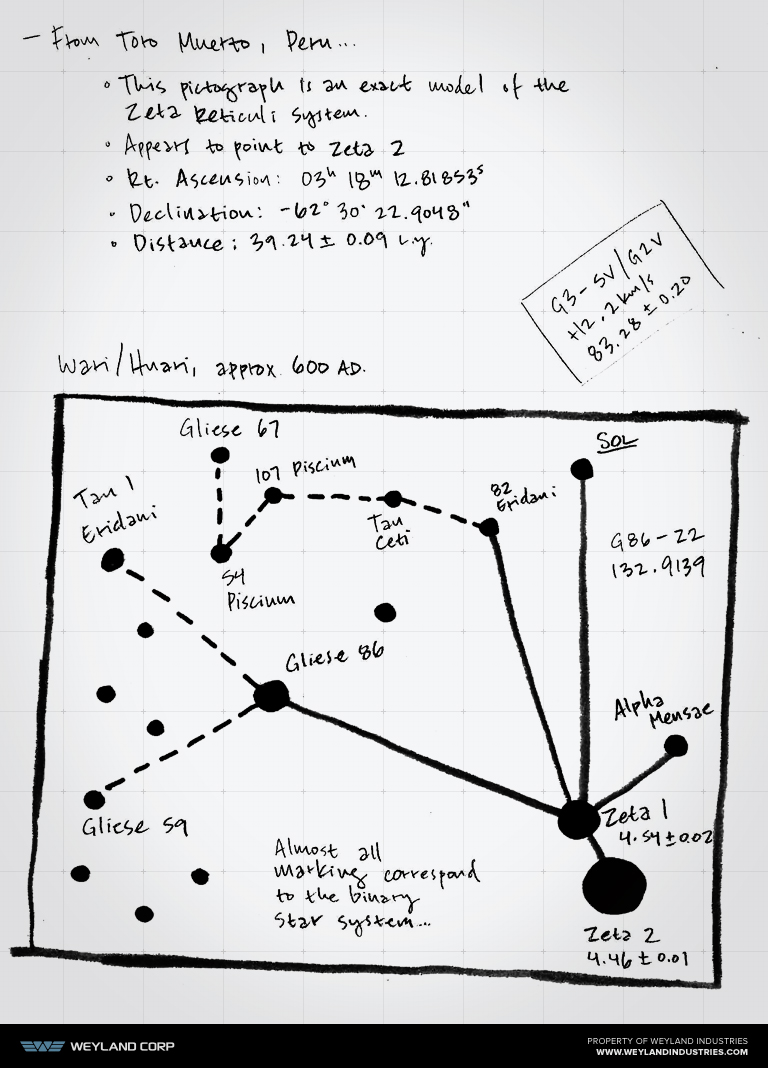 – From Toro Muerto, Peru...
• This pictograph is an exact model of the
Zeta Reticuli system.
• Appears to point to Zeta 2
• Rt. Ascension: 03h 18m 12.81853s
• Declination: -62° 30' 22.9048"
• Distance: 39.24 ± 0.09 l.y.
G3-5V/G2V
+12.2 km/s
83.28 ± 0.20
Wari/Huari, approx. 600 AD.
Gliese 67
Sol
107 Piscium
82
Eridani
Tau 1
Eridani
Tau
Ceti
G86-22
132.9139
54
Piscium
Gliese 86
Alpha
Mensae
Zeta 1
4.54±0.02
Gliese 59
Almost all
marking correspond
to the binary
star system...
Zeta 2
4.46 ± 0.01
WEYLAND CORP
PROPERTY OF WEYLAND INDUSTRIES
WWW.WEYLANDINDUSTRIES.COM